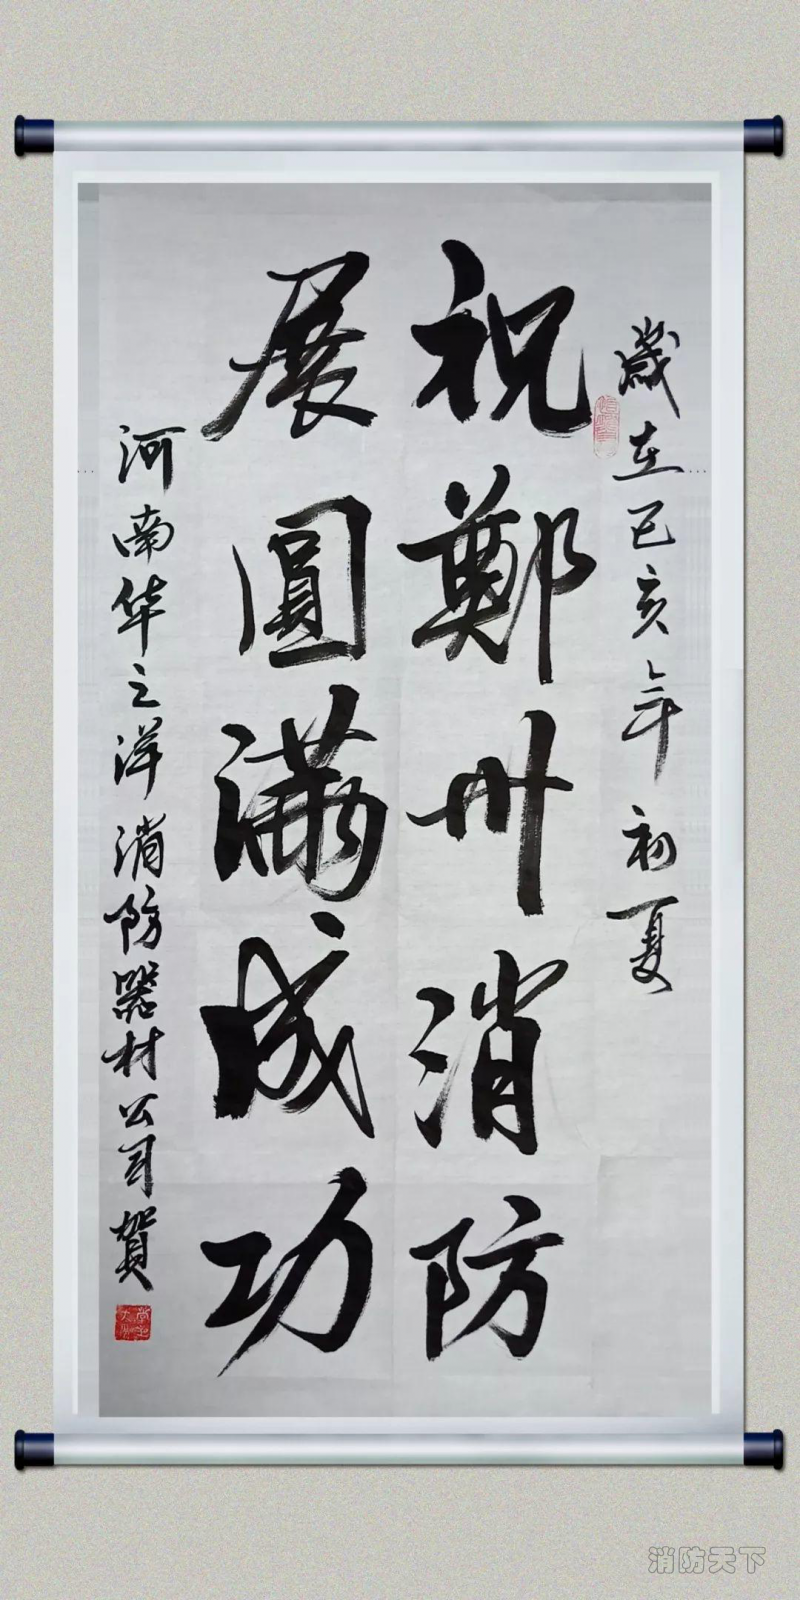 歲在己亥年初夏
祝鄭州消防
展圓滿成功
河南华之洋消防器材公司賀
消防天下